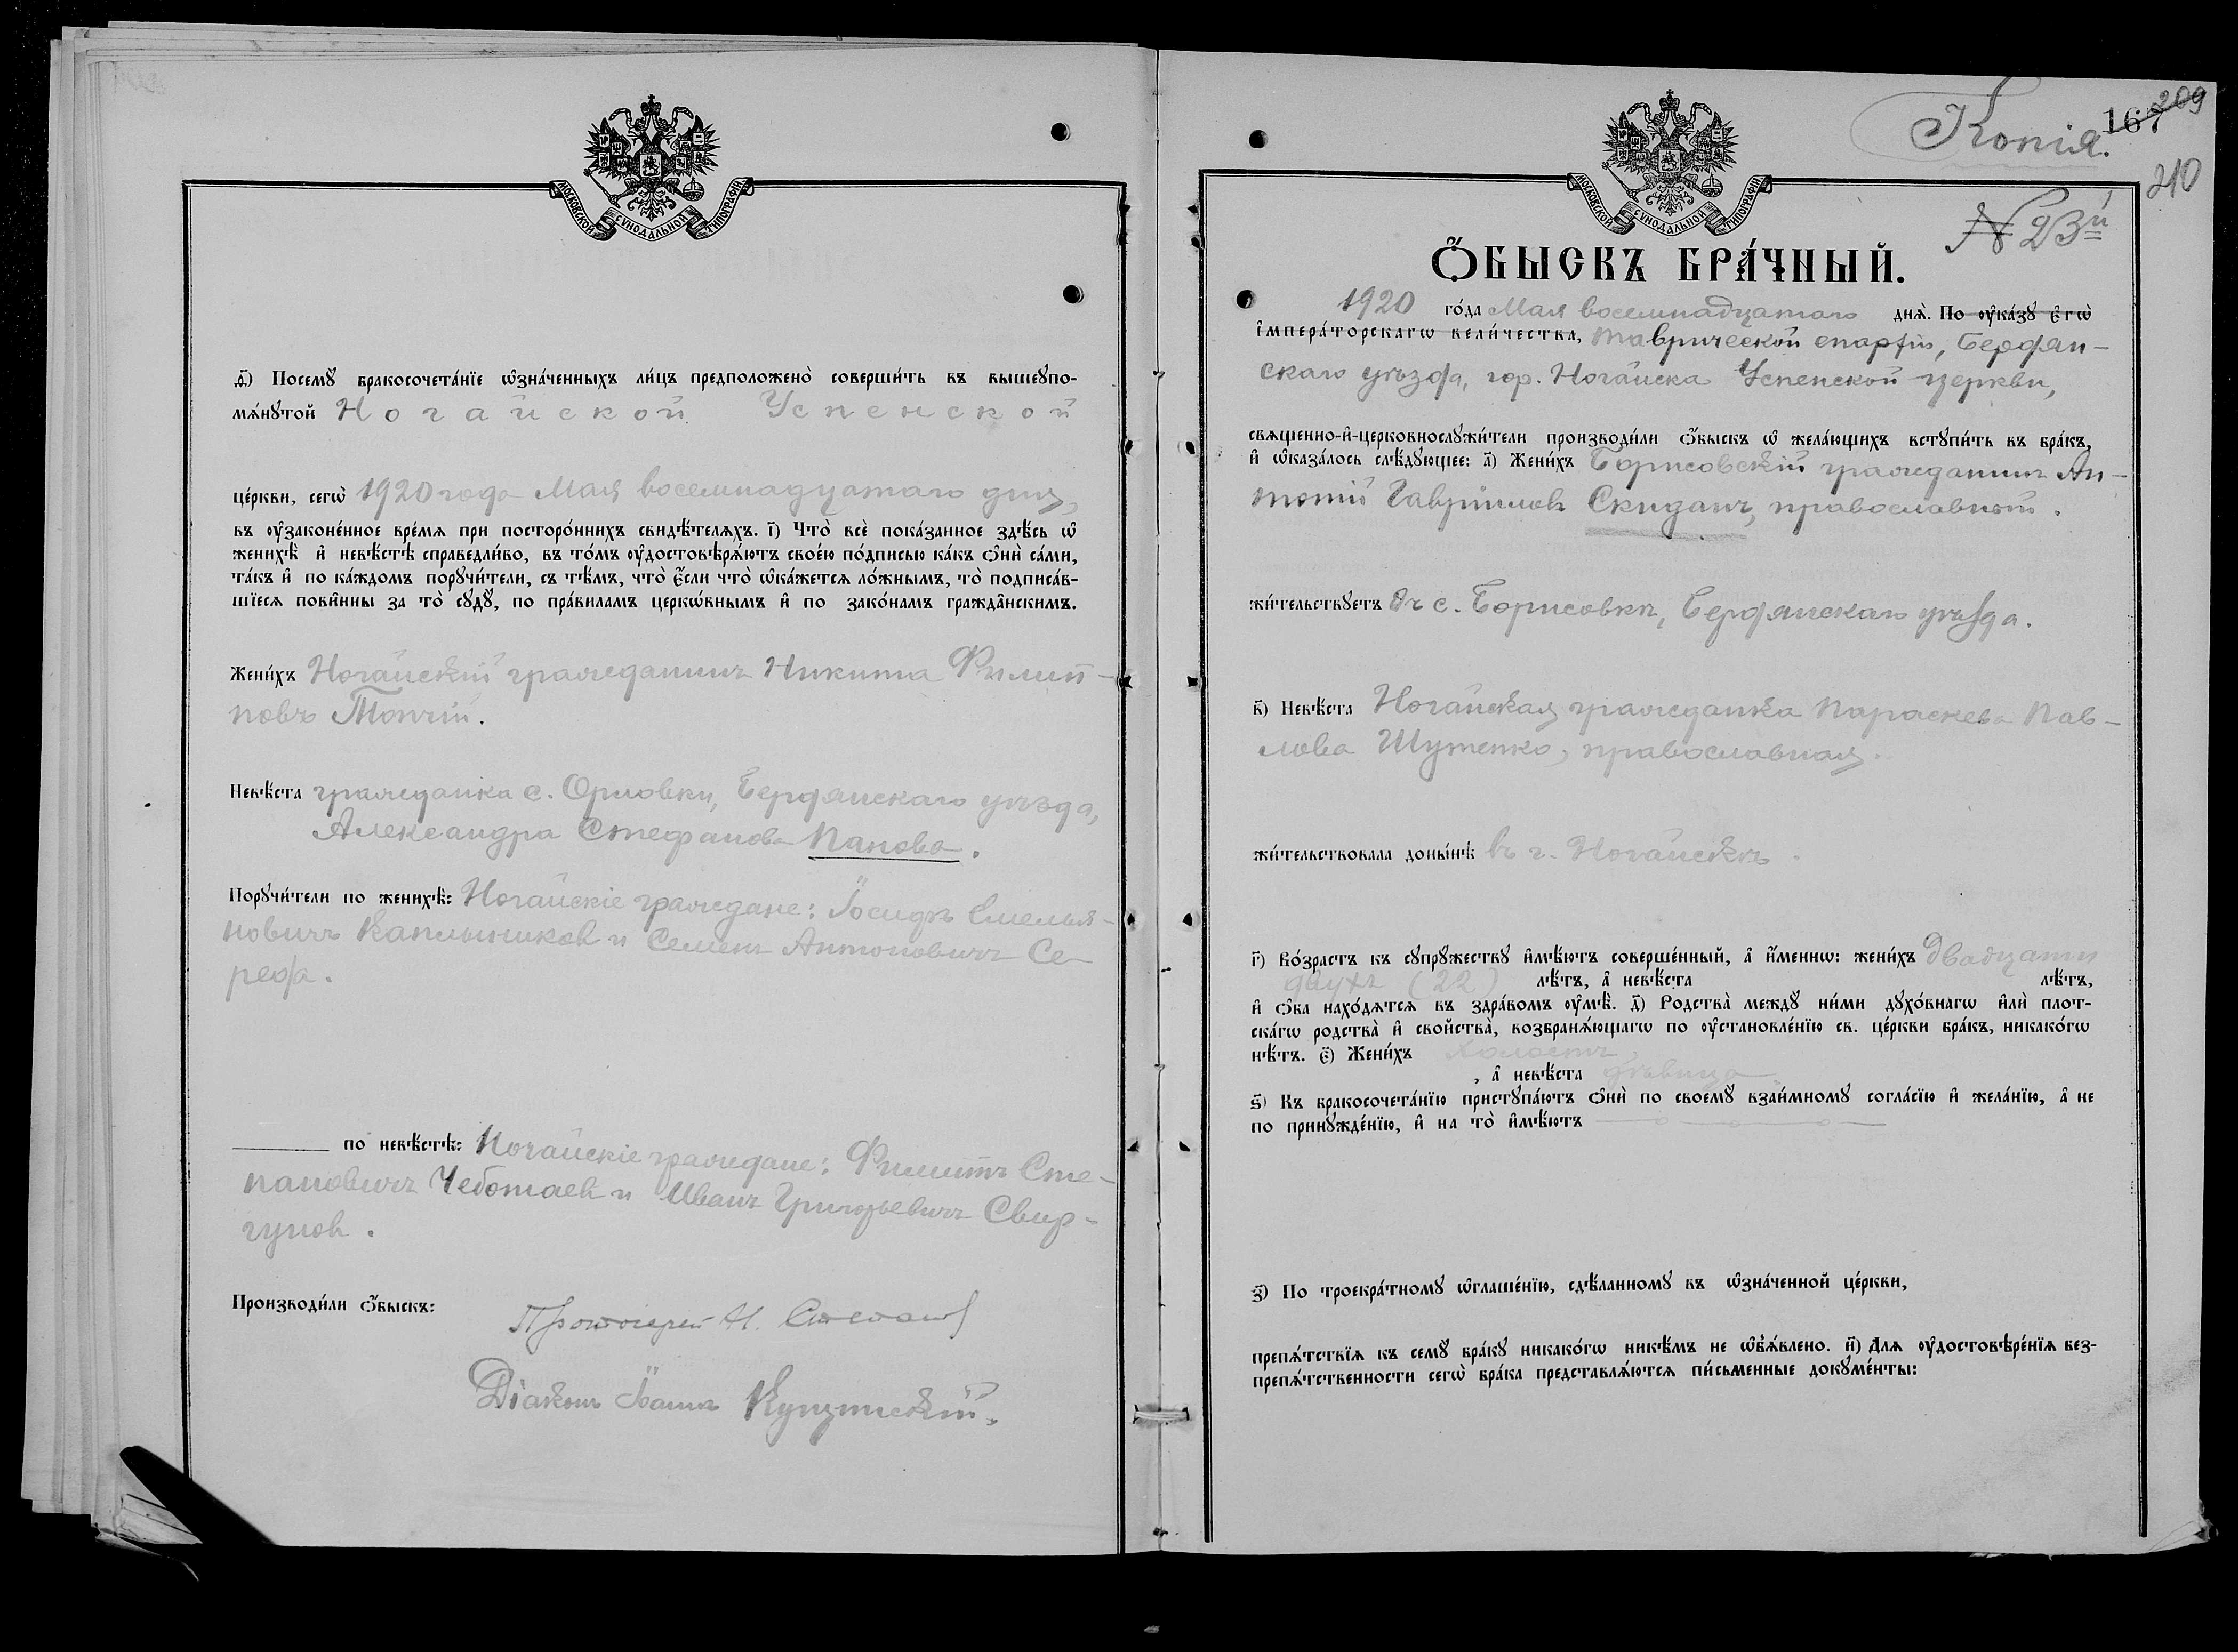 МОСКОВСКОЙ СѴНОДАЛЬНОЙ ТИПОГРАФІИ.
д҃і) Посемꙋ̀ бракосочета́нїе ѡ҆зна́ченныхъ ли́цъ предположено̀ соверши́ть въ вышеꙋпо-
мѧ́нꙋтой Ногайской Успенской
це́ркви, сегѡ̀ 1920 года Мая восемнадцатаго дня,
въ ᲂу҆законе́нное вре́мѧ при посторо́ннихъ свидѣ́телѧхъ. і҃) Что̀ всѐ пока́занное здѣ́сь ѡ҆
женихѣ̀ и҆ невѣ́стѣ справедли́во, въ то́мъ ᲂу҆достовѣрѧ́ютъ свое́ю по́дписью ка́къ ѻ҆нѝ са́ми,
та́къ и҆ по ка́ждомъ порꙋчи́тели, съ тѣ́мъ, что̀ є҆́сли что̀ ѡ҆ка́жетсѧ ло́жнымъ, то̀ подписа́в-
шїесѧ пови́нны за то̀ сꙋдꙋ̀, по пра́виламъ церко́внымъ и҆ по зако́намъ гражда́нскимъ.
Жени́хъ Ногайскій гражданинъ Никита Филип-
повъ Топчій.
Невѣ́ста гражданка с. Орловки, Бердянскаго уѣзда,
Александра Стефанова Панова.
Порꙋчи́тели по женихѣ̀: Ногайскіе граждане: Іосифъ Емелья-
новичъ Каплынишков и Семенъ Антоновичъ Се-
реда.
по невѣ́стѣ: Ногайскіе граждане: Филиппъ Сте-
пановичъ Чеботаев и Иванъ Григорьевичъ Свир-
гунов.
Производи́ли ѻ҆́быскъ:
Протоіерей Н.
Діаконъ Іоаннъ
Копія.
167 209
210
МОСКОВСКОЙ СѴНОДАЛЬНОЙ ТИПОГРАФІИ.
№ 23й
Ѻ҆́БЫСКЪ БРА́ЧНЫЙ.
1920 го́да Мая восемнадцатаго днѧ̀. По ᲂу҆ка́зꙋ є҆гѡ̀
и҆мпера́торскагѡ вели́чества, Таврической епархіи, Бердян-
скаго уѣзда, гор. Ногайска Успенской церкви,
свѧще́нно-и҆-церковнослꙋжи́тели производи́ли ѻ҆́быскъ ѡ҆ жела́ющихъ встꙋпи́ть въ бра́къ,
и҆ ѡ҆каза́лось слѣ́дꙋющее: а҃) Жени́хъ Борисовскій гражданинъ Ан-
тоній Гавріилов Скиданъ, православный.
жи́тельствꙋетъ въ с. Борисовкѣ, Бердянскаго уѣзда.
в҃) Невѣ́ста Ногайская гражданка Параскева Пав-
лова Шутенко, православная.
жи́тельствовала доны́нѣ въ г. Ногайскѣ.
г҃) Во́зрастъ къ сꙋпрꙋ́жествꙋ и҆мѣ́ютъ соверше́нный, а҆ и҆́менно: жени́хъ двадцати
двухъ (22) лѣ́тъ, а҆ невѣ́ста лѣ́тъ,
и҆ ѻ҆́ба нахо́дѧтсѧ въ здра́вомъ ᲂу҆мѣ̀. д҃) Родства̀ междꙋ̀ ни́ми дꙋхо́внагѡ и҆лѝ плот-
ска́гѡ родства̀ и҆ свойства̀, возбранѧ́ющагѡ по ᲂу҆становле́нїю св. це́ркви бра́къ, никако́гѡ
нѣ́тъ. є҃) Жени́хъ холостъ,
, а҆ невѣ́ста дѣвица
ѕ҃) Къ бракосочета́нїю пристꙋпа́ютъ ѻ҆нѝ по своемꙋ̀ взаи́мномꙋ согла́сїю и҆ жела́нїю, а҆ не
по принꙋжде́нїю, и҆ на то̀ и҆мѣ́ютъ
з҃) По троекра́тномꙋ ѡ҆глаше́нїю, сдѣ́ланномꙋ въ ѡ҆зна́ченной це́ркви,
препѧ́тствїѧ къ семꙋ̀ бра́кꙋ никако́гѡ никѣ́мъ не ѡ҆б̾ѧ́влено. и҃) Длѧ ᲂу҆достовѣре́нїѧ без-
препѧ́тственности сегѡ̀ бра́ка представлѧ́ютсѧ пи́сьменные докꙋме́нты: